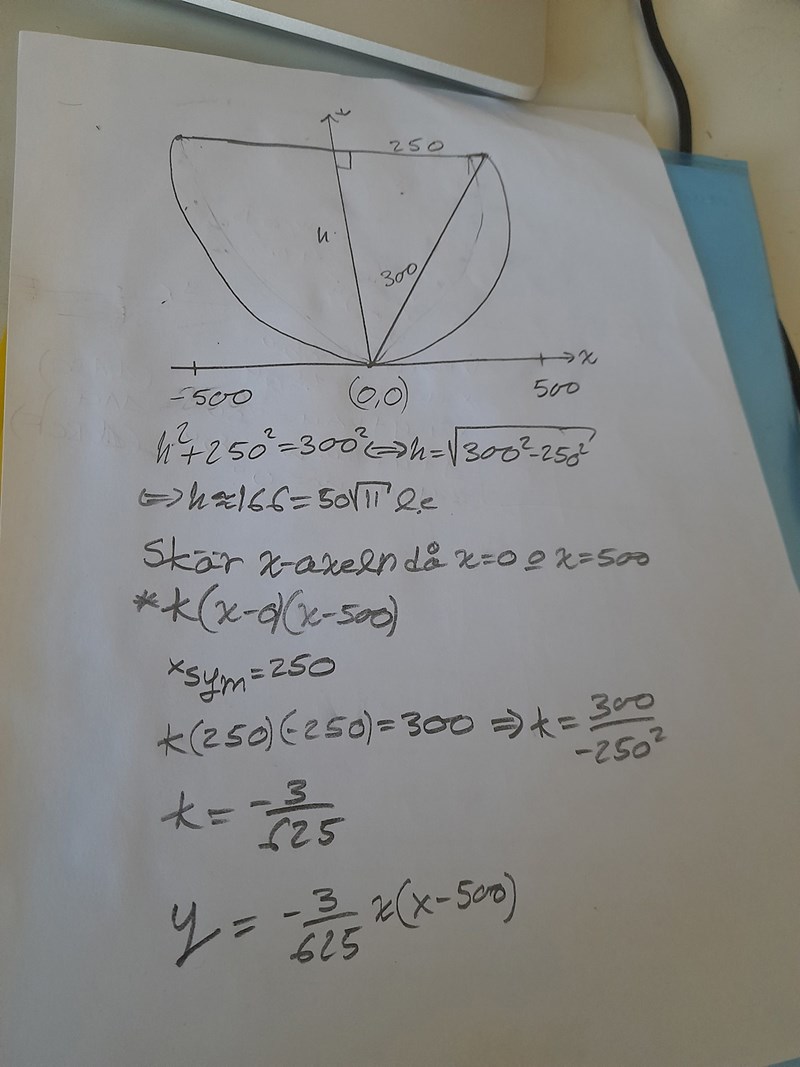 y
250
h
300
x
-500 (0,0) 500
h²+250²=300² ⇔ h=√(300²-250²)
⇔ h≈166=50√11 l.e
Skär x-axeln då x=0 o x=500
*k(x-0)(x-500)
xsym=250
k(250)(-250)=300 ⇒ k=300/-250²
k=-3/625
y=-3/625 x(x-500)